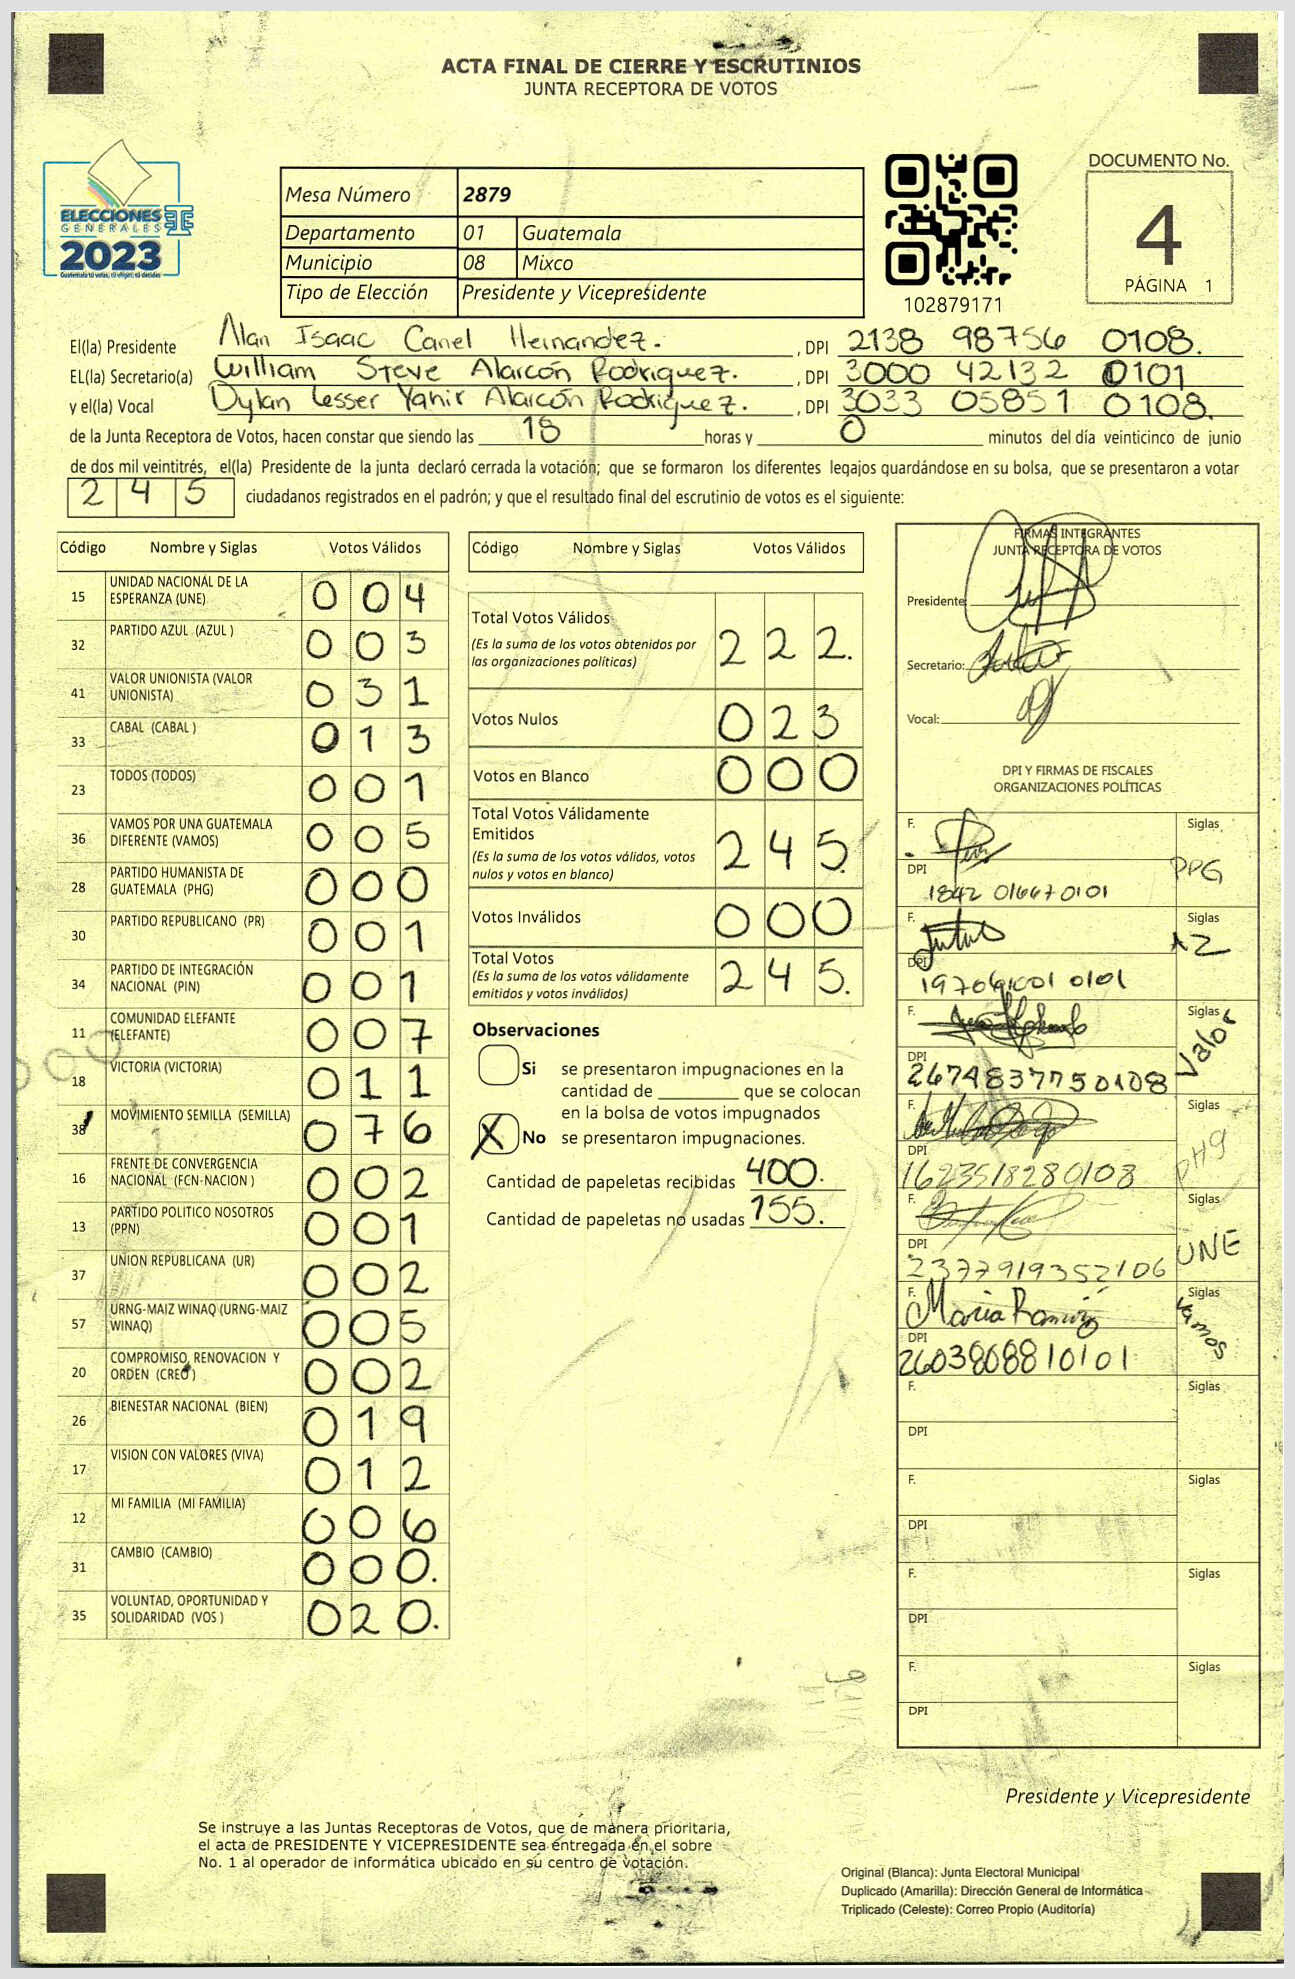 ACTA FINAL DE CIERRE Y ESCRUTINIOS
JUNTA RECEPTORA DE VOTOS
ELECCIONES
GENERALES
2023
Guatemala tú votas, tú eliges, tú decides
Mesa Número 2879
Departamento 01 Guatemala
Municipio 08 Mixco
Tipo de Elección Presidente y Vicepresidente
102879171
DOCUMENTO No.
4
PÁGINA 1
El(la) Presidente Alan Isaac Canel Hernandez. , DPI 2138 98756 0108.
EL(la) Secretario(a) William Steve Alarcón Rodriguez. , DPI 3000 42132 0101
y el(la) Vocal Dylan Lesser Yahir Alarcón Rodriguez. , DPI 3033 05851 0108.
de la Junta Receptora de Votos, hacen constar que siendo las 18 horas y 0 minutos del día veinticinco de junio
de dos mil veintitrés, el(la) Presidente de la junta declaró cerrada la votación; que se formaron los diferentes legajos guardándose en su bolsa, que se presentaron a votar
245 ciudadanos registrados en el padrón; y que el resultado final del escrutinio de votos es el siguiente:
Código Nombre y Siglas Votos Válidos
15 UNIDAD NACIONAL DE LA
ESPERANZA (UNE) 004
32 PARTIDO AZUL (AZUL ) 003
41 VALOR UNIONISTA (VALOR
UNIONISTA) 031
33 CABAL (CABAL ) 013
23 TODOS (TODOS) 001
36 VAMOS POR UNA GUATEMALA
DIFERENTE (VAMOS) 005
28 PARTIDO HUMANISTA DE
GUATEMALA (PHG) 000
30 PARTIDO REPUBLICANO (PR) 001
34 PARTIDO DE INTEGRACIÓN
NACIONAL (PIN) 001
11 COMUNIDAD ELEFANTE
(ELEFANTE) 007
18 VICTORIA (VICTORIA) 011
38 MOVIMIENTO SEMILLA (SEMILLA) 076
16 FRENTE DE CONVERGENCIA
NACIONAL (FCN-NACION ) 002
13 PARTIDO POLITICO NOSOTROS
(PPN) 001
37 UNION REPUBLICANA (UR) 002
57 URNG-MAIZ WINAQ (URNG-MAIZ
WINAQ) 005
20 COMPROMISO, RENOVACION Y
ORDEN (CREO ) 002
26 BIENESTAR NACIONAL (BIEN) 019
17 VISION CON VALORES (VIVA) 012
12 MI FAMILIA (MI FAMILIA) 006
31 CAMBIO (CAMBIO) 000.
35 VOLUNTAD, OPORTUNIDAD Y
SOLIDARIDAD (VOS ) 020.
Código Nombre y Siglas Votos Válidos
Total Votos Válidos
(Es la suma de los votos obtenidos por
las organizaciones políticas) 222.
Votos Nulos 023
Votos en Blanco 000
Total Votos Válidamente
Emitidos
(Es la suma de los votos válidos, votos
nulos y votos en blanco) 245.
Votos Inválidos 000
Total Votos
(Es la suma de los votos válidamente
emitidos y votos inválidos) 245.
Observaciones
Si se presentaron impugnaciones en la
cantidad de ________ que se colocan
en la bolsa de votos impugnados
X No se presentaron impugnaciones.
Cantidad de papeletas recibidas 400.
Cantidad de papeletas no usadas 155.
FIRMAS INTEGRANTES
JUNTA RECEPTORA DE VOTOS
Presidente:
Secretario:
Vocal:
DPI Y FIRMAS DE FISCALES
ORGANIZACIONES POLÍTICAS
F. Siglas PPG
DPI 1842 01667 0101
F. Siglas AZ
DPI 197061001 0101
F. Siglas Valor
DPI 2674837750108
F. Siglas PH9
DPI 1623518280108
F. Siglas UNE
DPI 2377919352106
F. Maria Ramirez Siglas Vamos
DPI 2603808810101
F. Siglas
DPI
F. Siglas
DPI
F. Siglas
DPI
F. Siglas
DPI
Presidente y Vicepresidente
Se instruye a las Juntas Receptoras de Votos, que de manera prioritaria,
el acta de PRESIDENTE Y VICEPRESIDENTE sea entregada en el sobre
No. 1 al operador de informática ubicado en su centro de votación.
Original (Blanca): Junta Electoral Municipal
Duplicado (Amarilla): Dirección General de Informática
Triplicado (Celeste): Correo Propio (Auditoría)